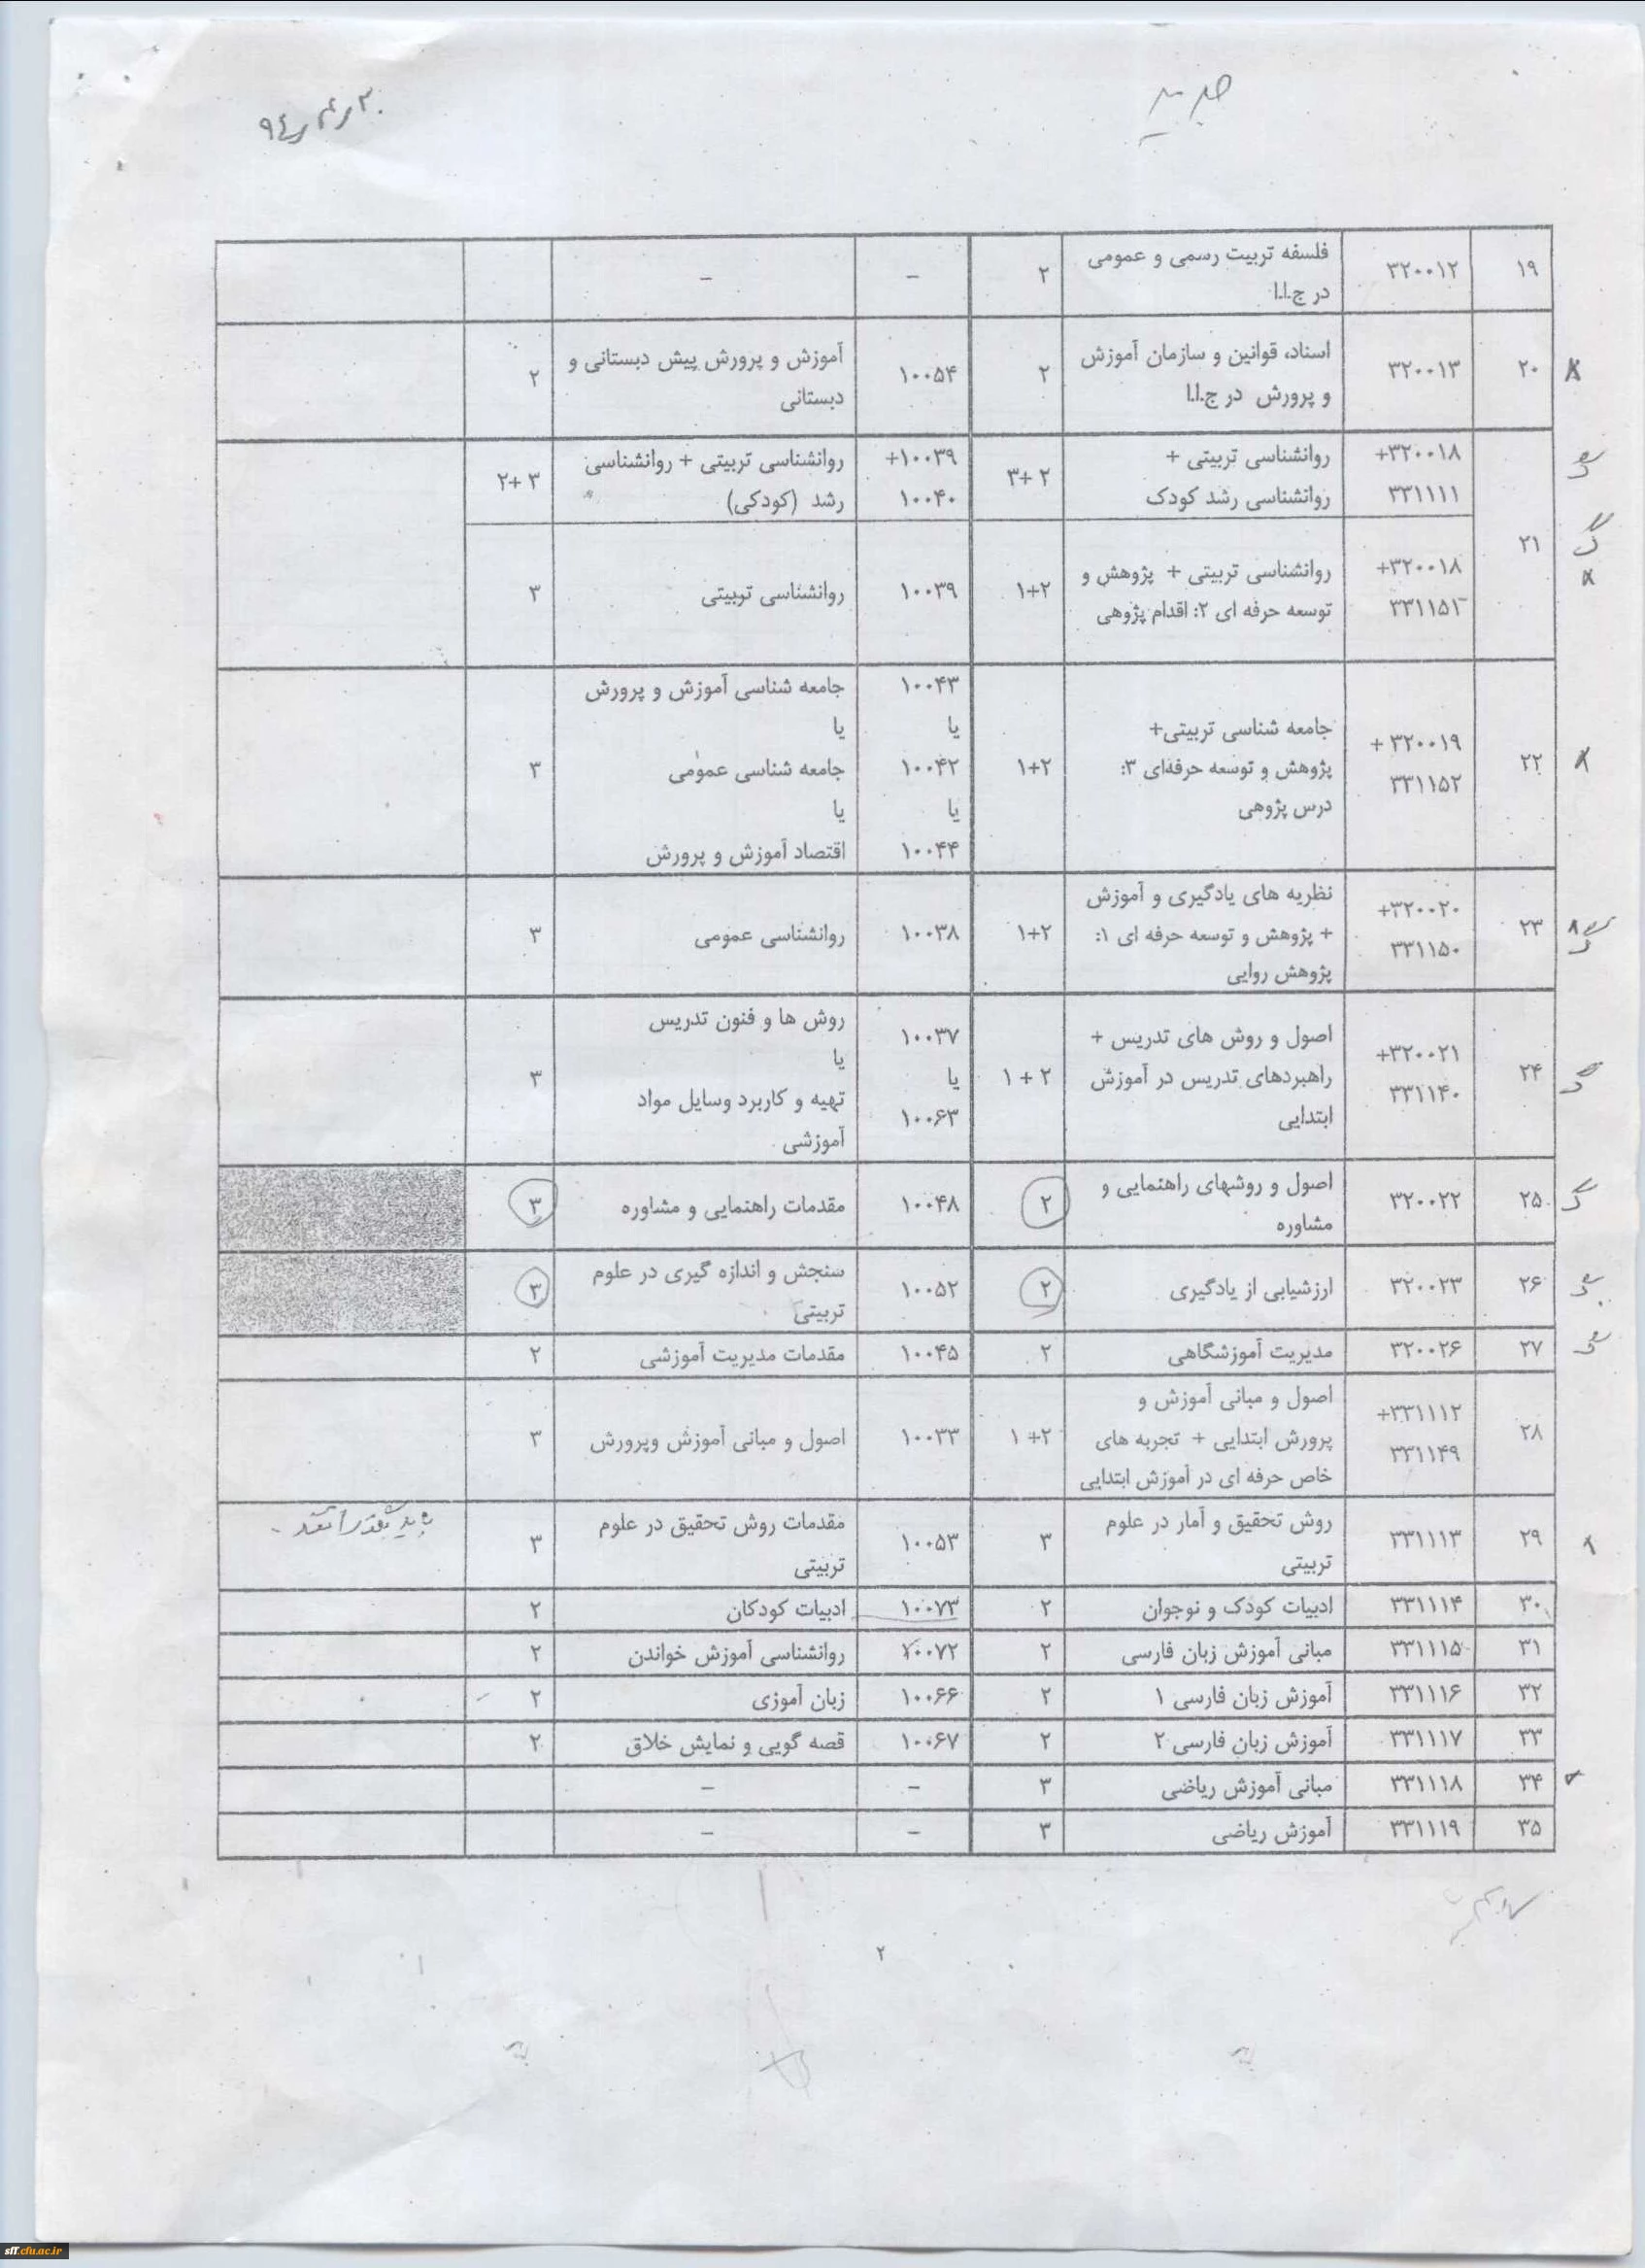 جدید
۹۴/۴/۳۰
۱۹ ۳۲۰۰۱۲ فلسفه تربیت رسمی و عمومی ۲ – –
در ج.ا.ا
۲۰ ۳۲۰۰۱۳ اسناد، قوانین و سازمان آموزش ۲ ۱۰۰۵۴ آموزش و پرورش پیش دبستانی و ۲
و پرورش در ج.ا.ا دبستانی
۲۱ ۳۲۰۰۱۸+ روانشناسی تربیتی + ۲ +۳ ۱۰۰۳۹+ روانشناسی تربیتی + روانشناسی ۳ +۲
۳۳۱۱۱۱ روانشناسی رشد کودک ۱۰۰۴۰ رشد (کودکی)
۳۲۰۰۱۸+ روانشناسی تربیتی + پژوهش و ۱+۲ ۱۰۰۳۹ روانشناسی تربیتی ۳
۳۳۱۱۵۱ توسعه حرفه ای ۲: اقدام پژوهی
۲۲ ۳۲۰۰۱۹ + جامعه شناسی تربیتی+ ۱+۲ ۱۰۰۴۳ جامعه شناسی آموزش و پرورش ۳
یا یا
۳۳۱۱۵۲ پژوهش و توسعه حرفه‌ای ۳: ۱۰۰۴۲ جامعه شناسی عمومی
درس پژوهی یا یا
۱۰۰۴۴ اقتصاد آموزش و پرورش
۲۳ ۳۲۰۰۲۰+ نظریه های یادگیری و آموزش ۱+۲ ۱۰۰۳۸ روانشناسی عمومی ۳
۳۳۱۱۵۰ + پژوهش و توسعه حرفه ای ۱:
پژوهش روایی
۲۴ ۳۲۰۰۲۱+ اصول و روش های تدریس + ۲ + ۱ ۱۰۰۳۷ روش ها و فنون تدریس ۳
۳۳۱۱۴۰ راهبردهای تدریس در آموزش یا یا
ابتدایی ۱۰۰۶۳ تهیه و کاربرد وسایل مواد
آموزشی
۲۵ ۳۲۰۰۲۲ اصول و روشهای راهنمایی و ۲ ۱۰۰۴۸ مقدمات راهنمایی و مشاوره ۳
مشاوره
۲۶ ۳۲۰۰۲۳ ارزشیابی از یادگیری ۲ ۱۰۰۵۲ سنجش و اندازه گیری در علوم ۳
تربیتی
۲۷ ۳۲۰۰۲۶ مدیریت آموزشگاهی ۲ ۱۰۰۴۵ مقدمات مدیریت آموزشی ۲
۲۸ ۳۳۱۱۱۲+ اصول و مبانی آموزش و ۲+ ۱ ۱۰۰۳۳ اصول و مبانی آموزش وپرورش ۳
۳۳۱۱۴۹ پرورش ابتدایی + تجربه های
خاص حرفه ای در آموزش ابتدایی
۲۹ ۳۳۱۱۱۳ روش تحقیق و آمار در علوم ۳ ۱۰۰۵۳ مقدمات روش تحقیق در علوم ۳
تربیتی تربیتی
۳۰ ۳۳۱۱۱۴ ادبیات کودک و نوجوان ۲ ۱۰۰۷۳ ادبیات کودکان ۲
۳۱ ۳۳۱۱۱۵ مبانی آموزش زبان فارسی ۲ ۱۰۰۷۲ روانشناسی آموزش خواندن ۲
۳۲ ۳۳۱۱۱۶ آموزش زبان فارسی ۱ ۲ ۱۰۰۶۶ زبان آموزی ۲
۳۳ ۳۳۱۱۱۷ آموزش زبان فارسی ۲ ۲ ۱۰۰۶۷ قصه گویی و نمایش خلاق ۲
۳۴ ۳۳۱۱۱۸ مبانی آموزش ریاضی ۳ – –
۳۵ ۳۳۱۱۱۹ آموزش ریاضی ۳ – –
۲
stf.cfu.ac.ir